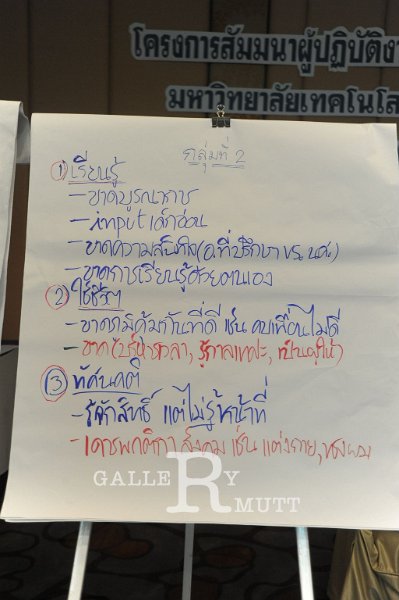 โครงการสัมมนาผู้ปฏิบัติงา
มหาวิทยาลัยเทคโนโล
กลุ่มที่ 2
① เรียนรู้
- ขาดบูรณาการ
- input เด็กอ่อน
- ขาดความสนใจ (อ.ที่ปรึกษา vs. นศ.)
- ขาดการเรียนรู้ด้วยตนเอง
② ใช้ชีวิต
- ขาดภูมิคุ้มกันที่ดี เช่น คบเพื่อนไม่ดี
- ขาด (บริหารเวลา, รู้กาลเทศะ, เป็นผู้ให้)
③ ทัศนคติ
- รู้จักสิทธิ์ แต่ไม่รู้หน้าที่
- เคารพกติกา สังคม เช่น แต่งกาย, ทรงผม
GALLERY
RMUTT